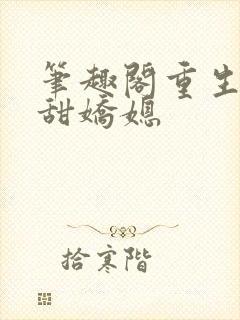 筆趣閣重生
甜嬌媳
拾寒階